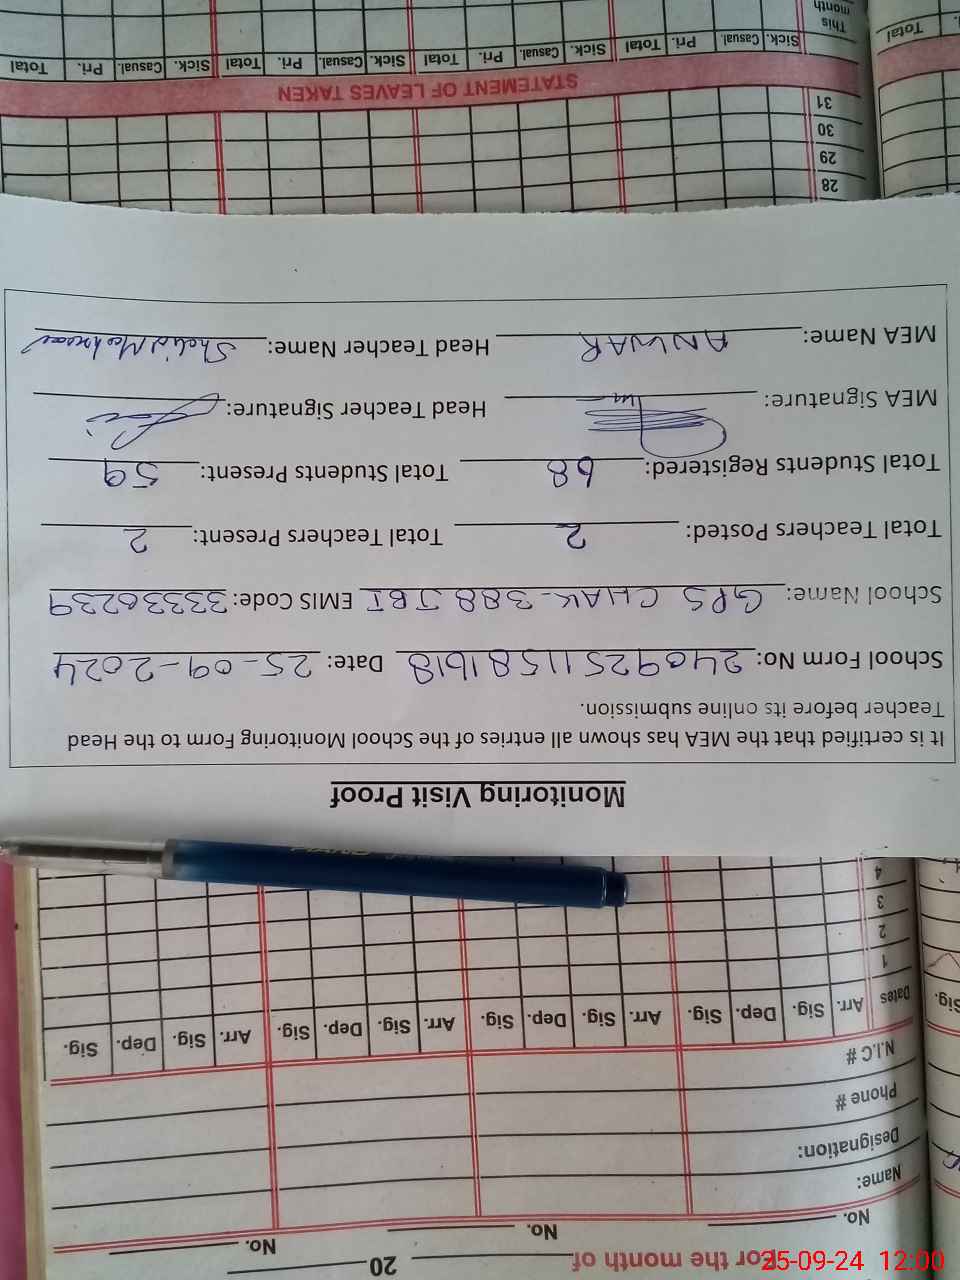 For the month of 20
No. No. No.
Name:
Designation:
Phone #
N.I.C #
Dates Arr. Sig. Dep. Sig. Arr. Sig. Dep. Sig. Arr. Sig. Dep. Sig. Arr. Sig. Dep. Sig.
Sig.
1
2
3
4
Monitoring Visit Proof
It is certified that the MEA has shown all entries of the School Monitoring Form to the Head
Teacher before its online submission.
School Form No: 24092511581618 Date: 25-09-2024
School Name: GPS CHAK-388 JBI EMIS Code: 33330239
Total Teachers Posted: 2 Total Teachers Present: 2
Total Students Registered: 68 Total Students Present: 59
MEA Signature: Head Teacher Signature:
MEA Name: ANWAR Head Teacher Name:
28
29
30
31
STATEMENT OF LEAVES TAKEN
Sick. Casual. Pri. Total Sick. Casual. Pri. Total Sick. Casual. Pri. Total Sick. Casual. Pri. Total
This
month
Total
25-09-24 12:00